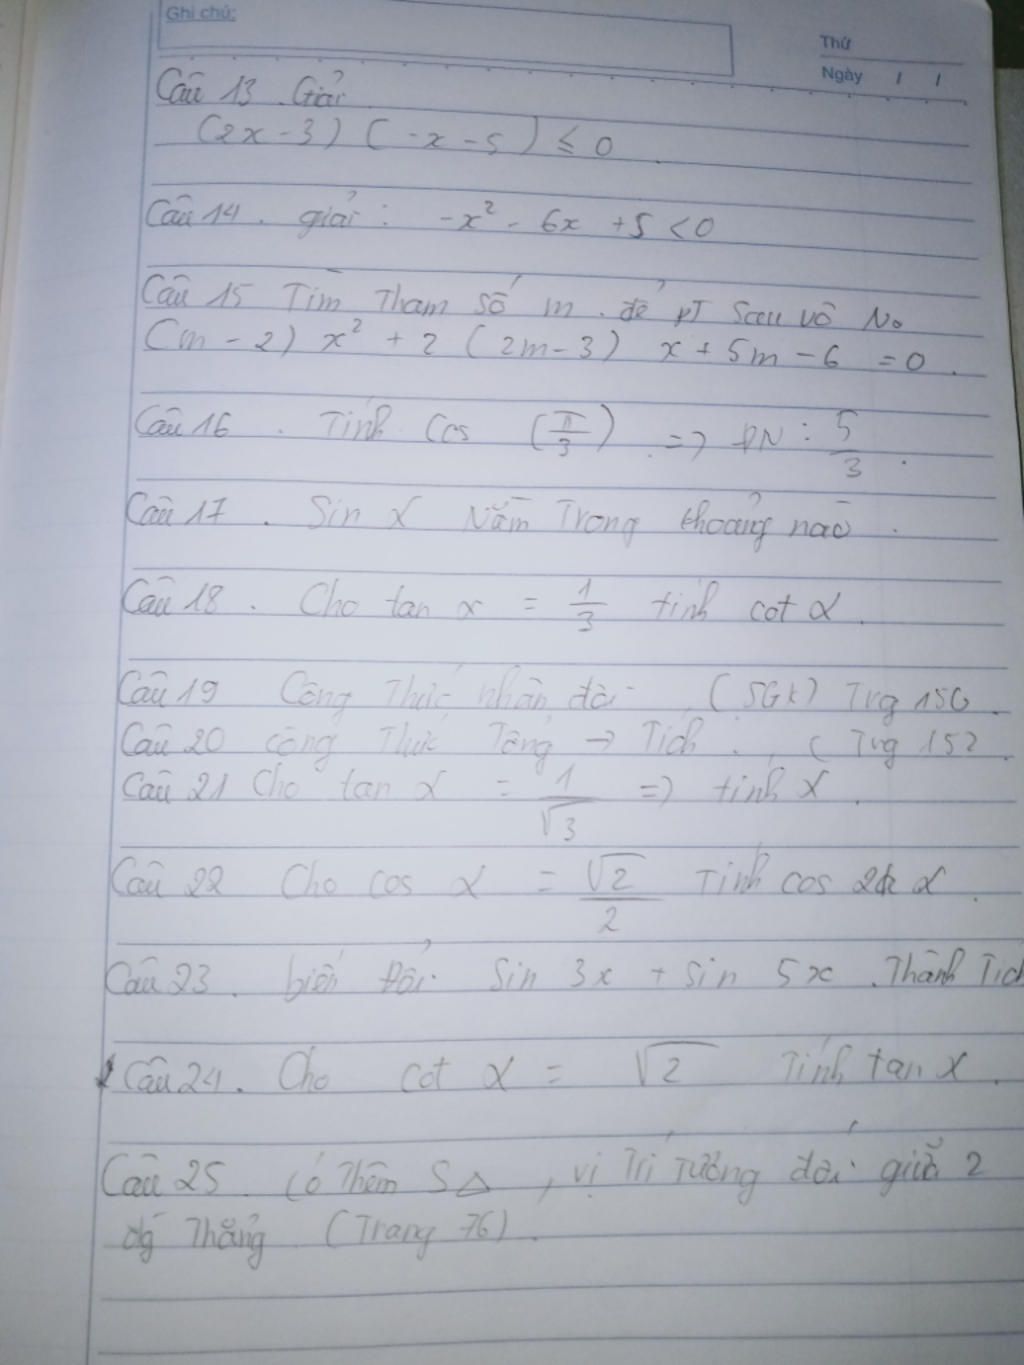 Ghi chú:
Thứ
Ngày / /
Câu 13 . Giải
(2x - 3) ( -x - 5 ) ≤ 0
Câu 14 . giải : -x² - 6x + 5 < 0
Câu 15 Tìm Tham số m . để pT sau vô No
(m - 2) x² + 2 (2m - 3) x + 5m - 6 = 0 .
Câu 16 . Tính Cos (π/3) . => ĐN : 5/3 .
Câu 17 . Sin α Nằm Trong khoảng nào .
Câu 18 . Cho tan α = 1/3 tính cot α .
Câu 19 Công Thức nhân đôi (SGK) Trg 150 .
Câu 20 công Thức Tổng → Tích . ( Trg 152 .
Câu 21 Cho tan α = 1/√3 => tính α .
Câu 22 Cho cos α = √2/2 Tính cos 2 α .
Câu 23 . biến Đổi Sin 3x + Sin 5x . Thành Tích
Câu 24 . Cho cot α = √2 Tính tan α .
Câu 25 . Có Thêm S△ , vị Trí Tương đối giữa 2
đg Thẳng (Trang 76) .